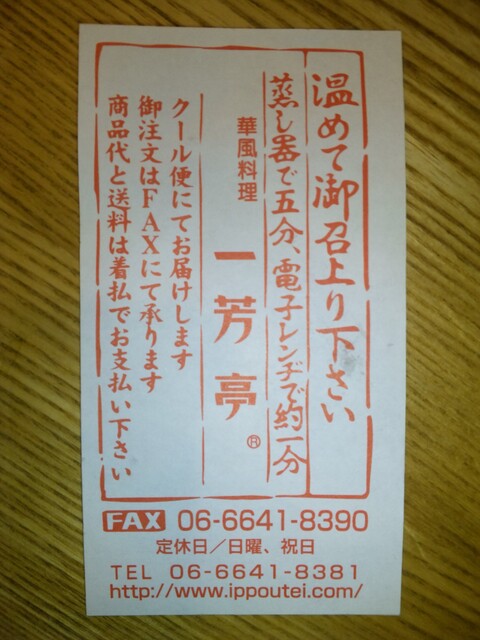 温めて御召上り下さい
蒸し器で五分、電子レンヂで約一分
華風料理
一芳亭®
クール便にてお届けします
御注文はFAXにて承ります
商品代と送料は着払でお支払い下さい
FAX 06-6641-8390
定休日／日曜、祝日
TEL 06-6641-8381
http://www.ippoutei.com/